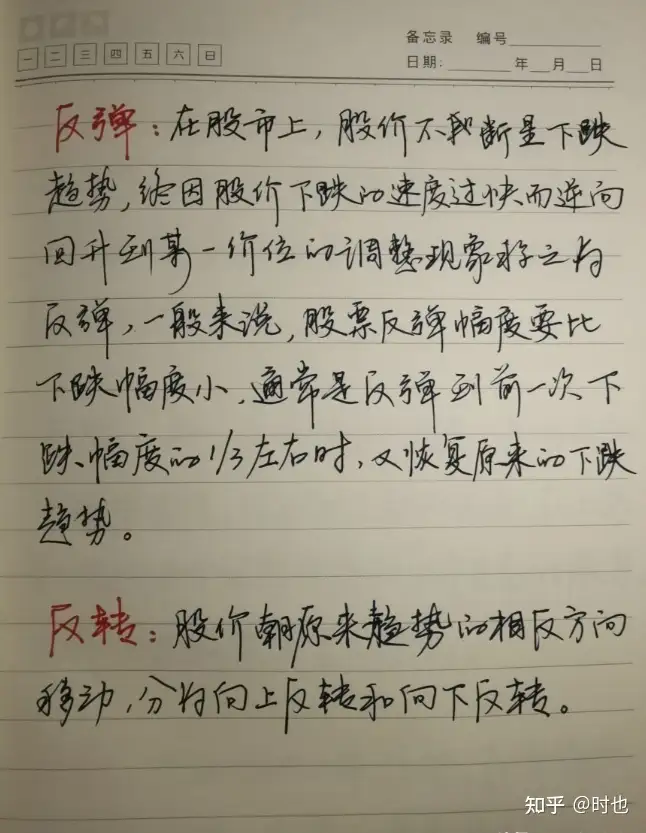 备忘录 编号
一 二 三 四 五 六 日
日期： 年 月 日
反弹：在股市上，股价不断呈下跌
趋势，终因股价下跌的速度过快而逆向
回升到某一价位的调整现象称之为
反弹，一般来说，股票反弹幅度要比
下跌幅度小，通常是反弹到前一次下
跌幅度的1/3左右时，又恢复原来的下跌
趋势。
反转：股价朝原来趋势的相反方向
移动，分为向上反转和向下反转。
知乎 @时也